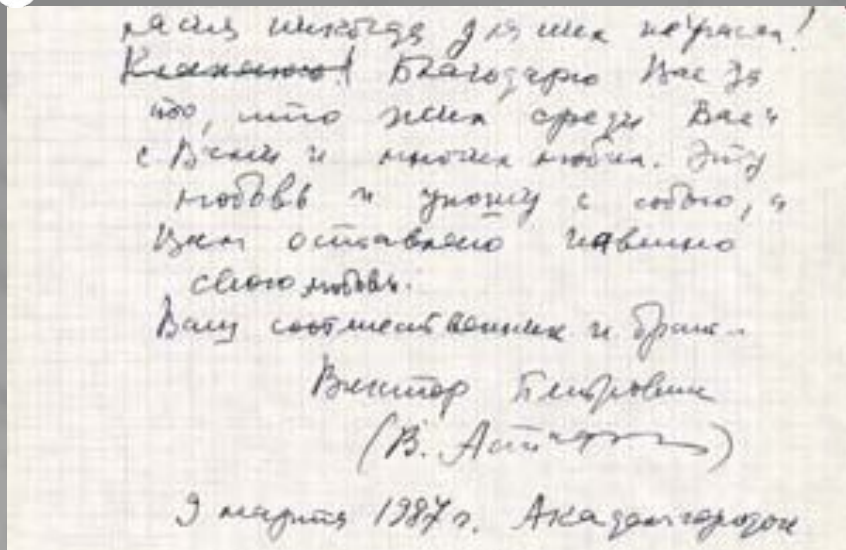 никогда для них не
Кланяюсь! Благодарю Вас за
то, что жил среди Вас и
с Вами и многих любил. Эту
любовь и уношу с собою, а
Вам оставляю
свою любовь.
Ваш соотечественник и брат
Виктор Петрович
(В. Астафьев)
9 марта 1987 г. Академгородок